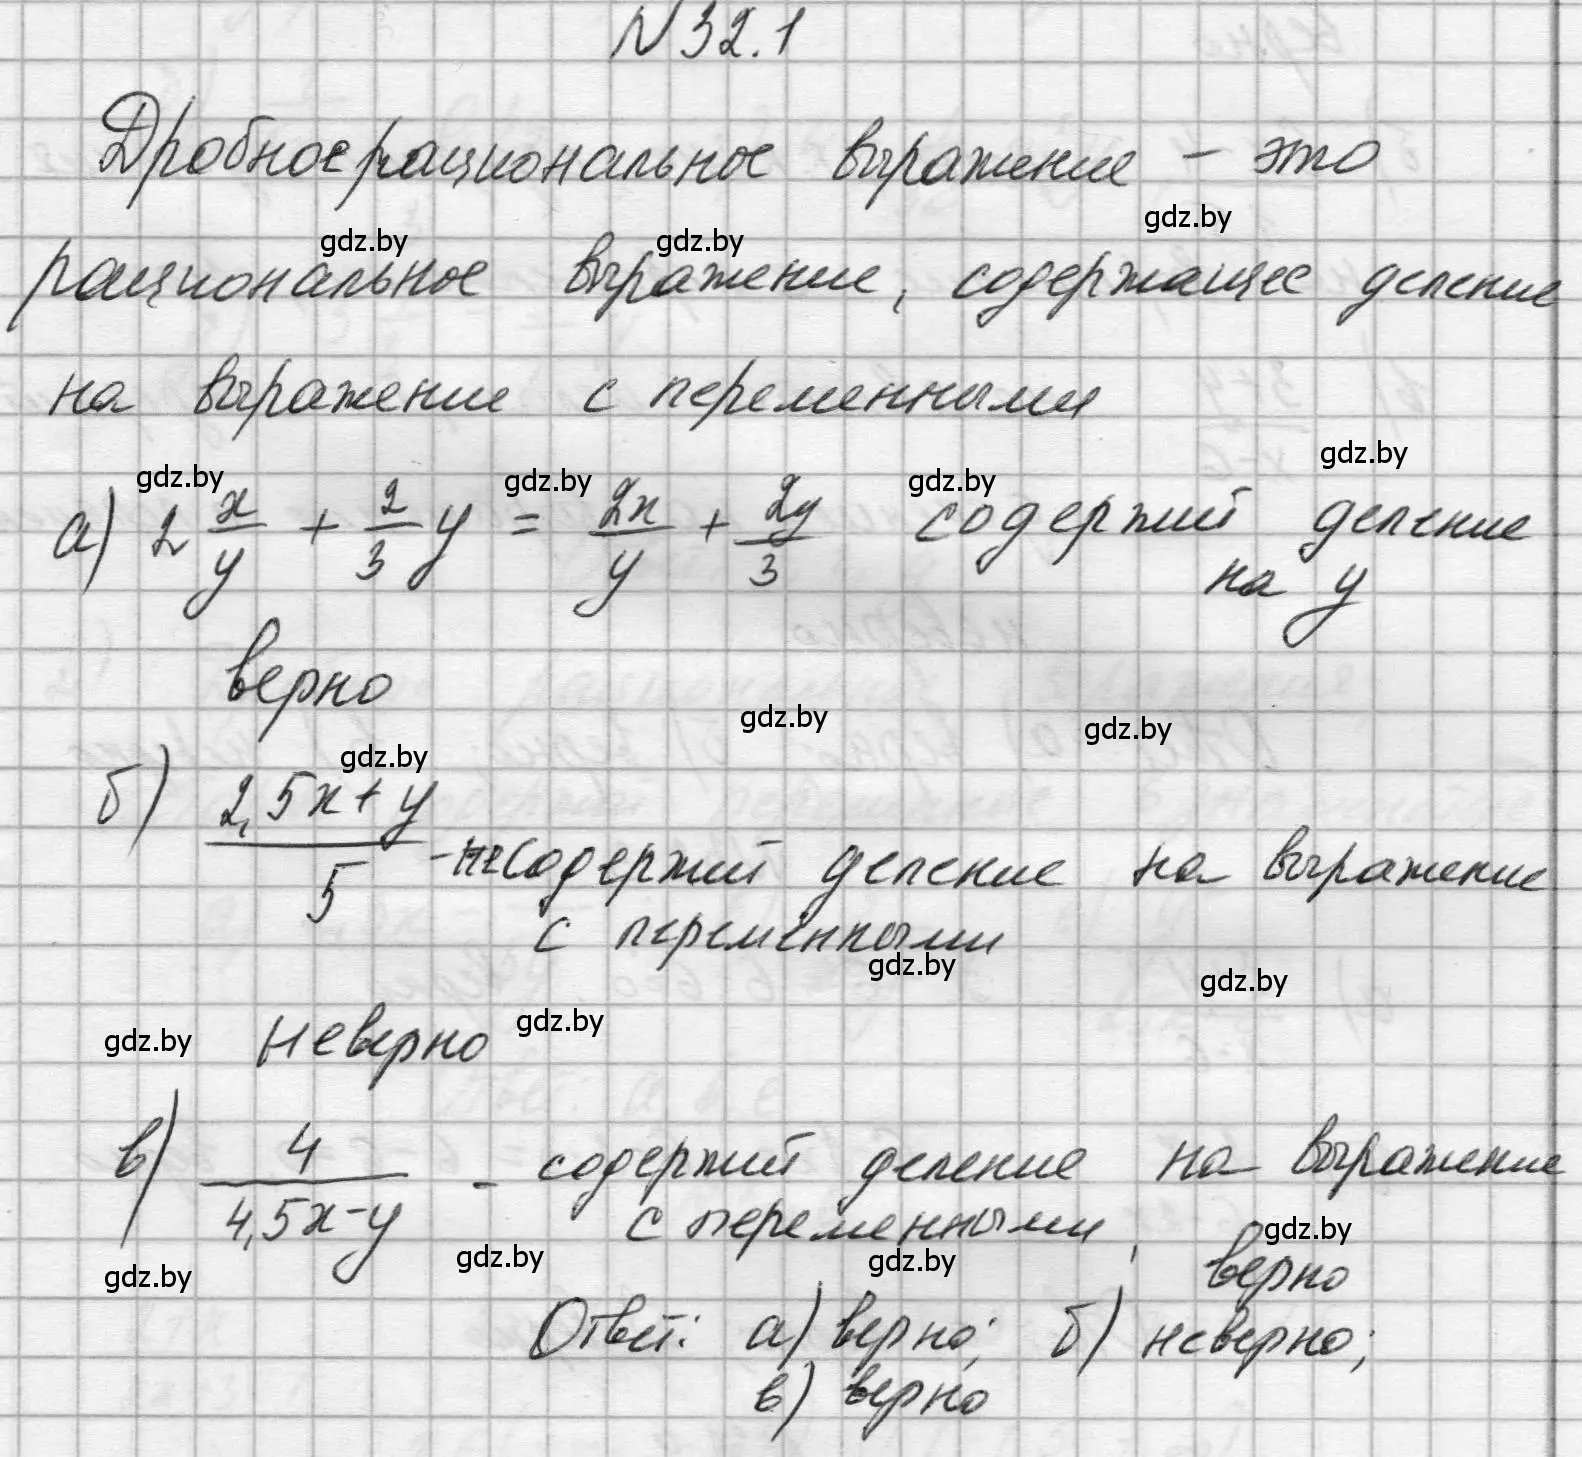 N 32.1
Дробнорациональное выражение – это
gdz.by gdz.by gdz.by
рациональное выражение, содержащее деление
на выражение с переменными
gdz.by gdz.by gdz.by gdz.by
а) 2 x/y + 2/3 y = 2x/y + 2y/3 содержит деление
на y
верно
gdz.by gdz.by
gdz.by
б) 2,5x+y / 5 - не содержит деление на выражение
с переменными
gdz.by gdz.by
gdz.by неверно gdz.by
в) 4 / 4,5x-y - содержит деление на выражение
с переменными,
gdz.by gdz.by gdz.by gdz.by
верно
Ответ: а) верно; б) неверно;
в) верно